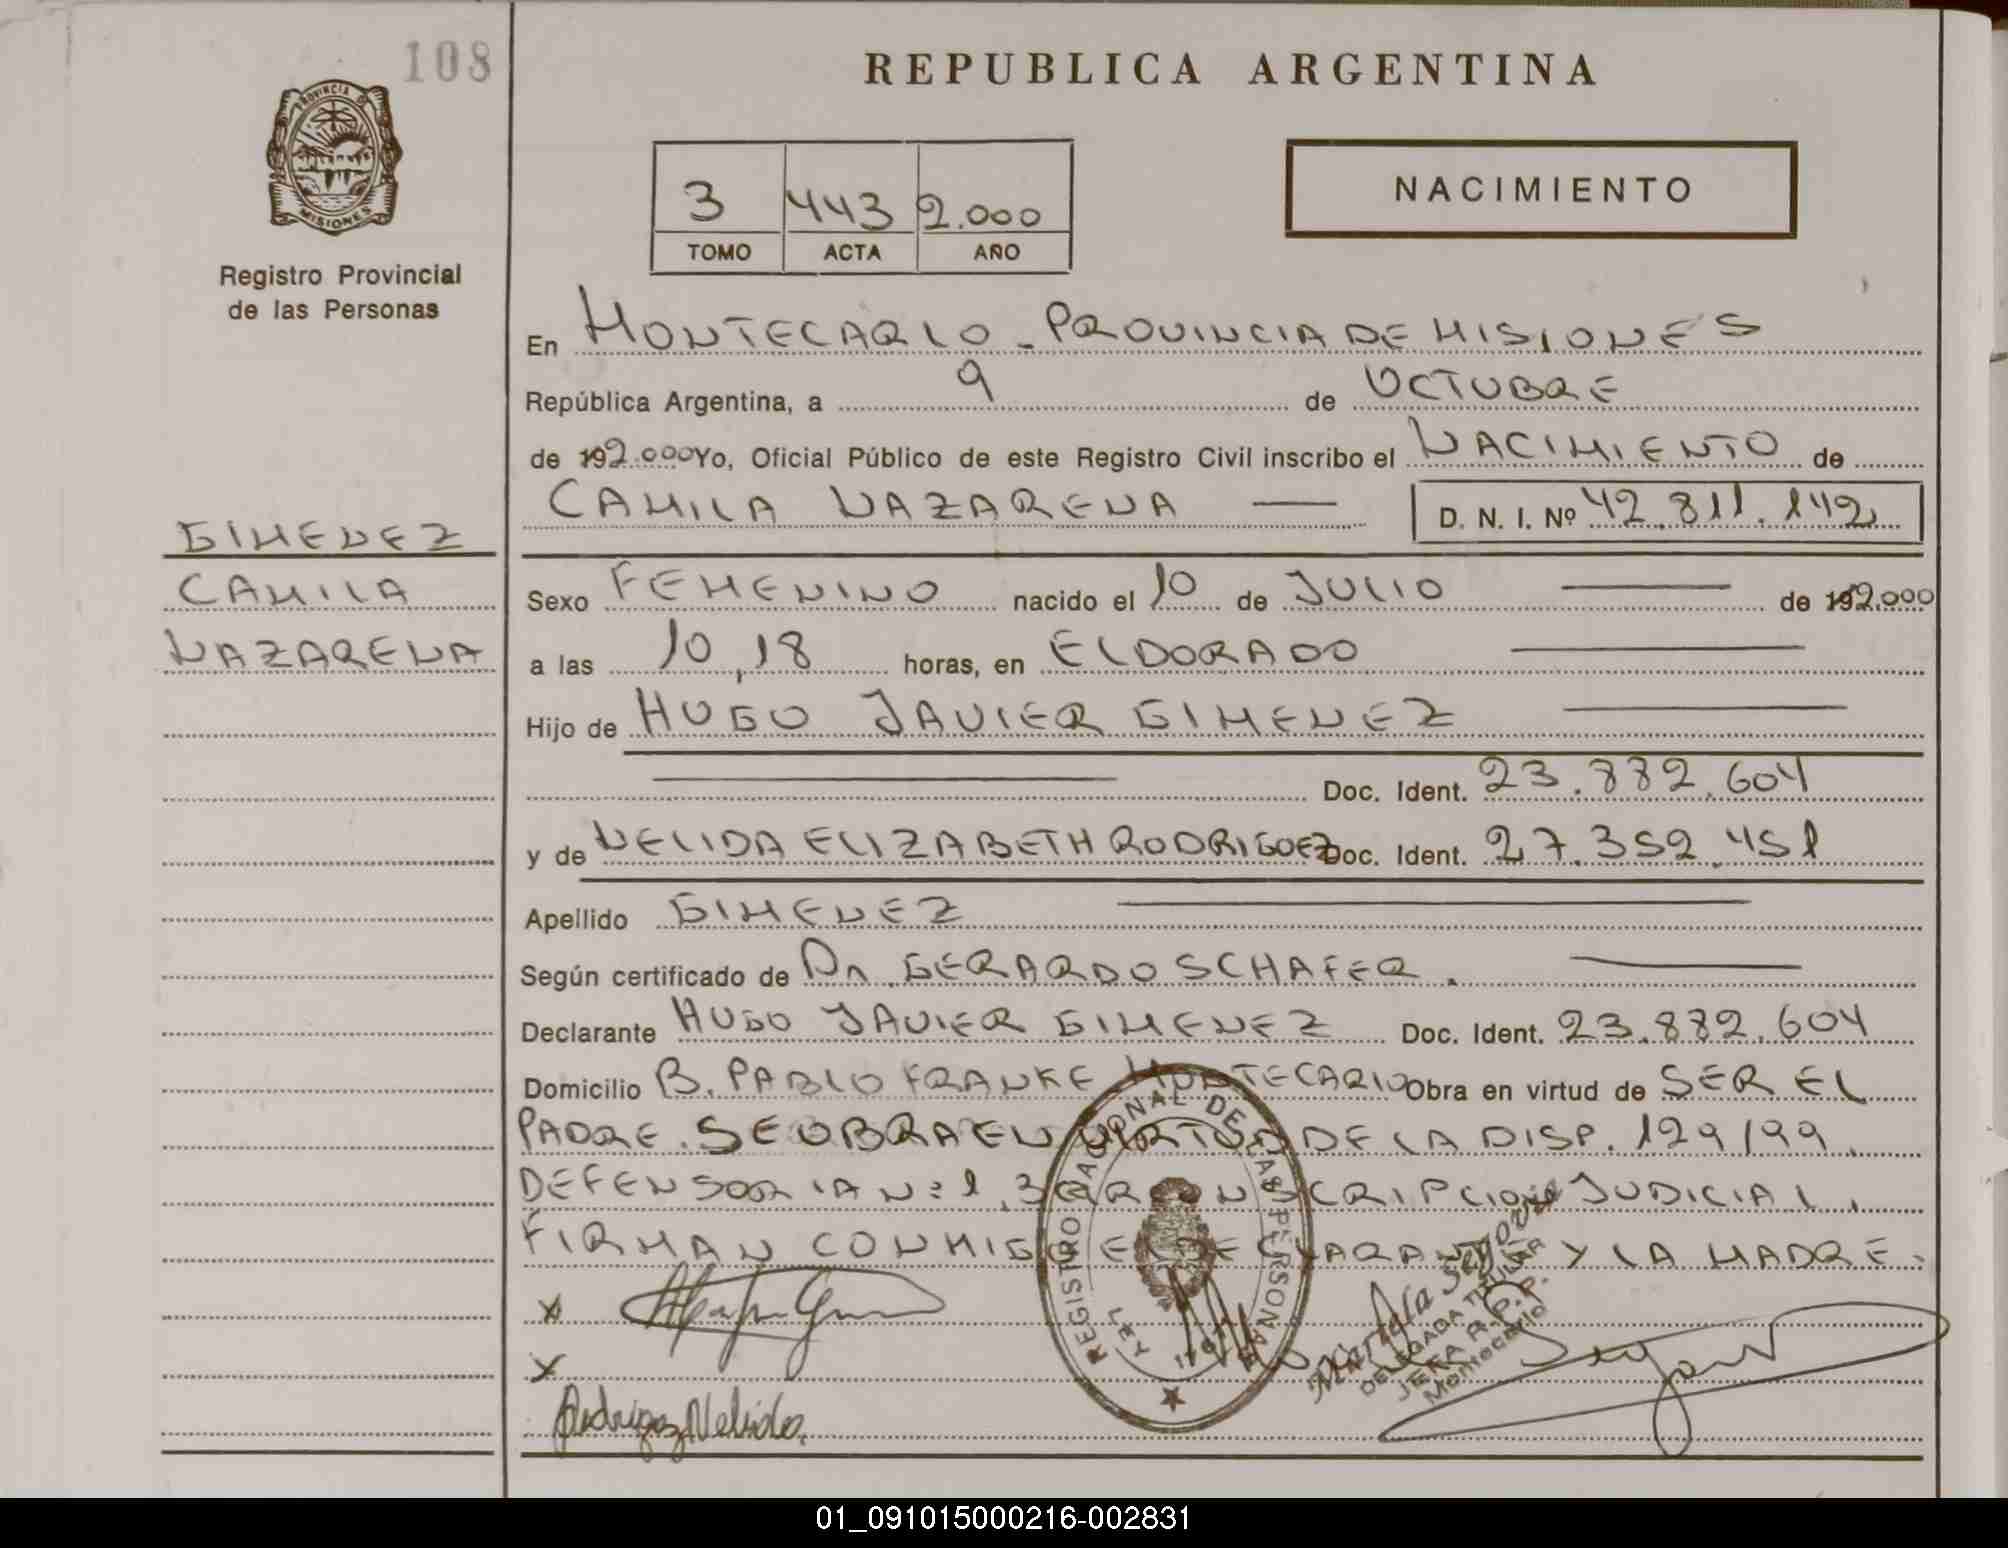 108
REPUBLICA ARGENTINA
PROVINCIA DE
MISIONES
Registro Provincial
de las Personas
3 443 2.000
TOMO ACTA AÑO
NACIMIENTO
En MONTECARLO - PROVINCIA DE MISIONES
República Argentina, a 9 de OCTUBRE
de 192.000 Yo, Oficial Público de este Registro Civil inscribo el NACIMIENTO de
CAMILA NAZARENA — D. N. I. Nº 42.811.142
GIMENEZ
CAMILA
NAZARENA
Sexo FEMENINO nacido el 10 de JULIO — de 192.000
a las 10,18 horas, en ELDORADO —
Hijo de HUGO JAVIER GIMENEZ —
— Doc. Ident. 23.882.604
y de NELIDA ELIZABETH RODRIGUEZ Doc. Ident. 27.352.451
Apellido GIMENEZ —
Según certificado de Dr. GERARDO SCHAFER. —
Declarante HUGO JAVIER GIMENEZ Doc. Ident. 23.882.604
Domicilio B. PABLO FRANKE MONTECARLO Obra en virtud de SER EL
PADRE. SE OBRA EN VIRTUD DE LA DISP. 129/99.
DEFENSORIA Nº 1, 3 CIRCUNSCRIPCION JUDICIAL.
FIRMAN CONMIGO EL DECLARANTE Y LA MADRE.
X
X
Rodriguez Nelida.
REGISTRO NACIONAL DE LAS PERSONAS
LEY
DELEGADA TITULAR
JEFA R.P.P.
Montecarlo
01_091015000216-002831